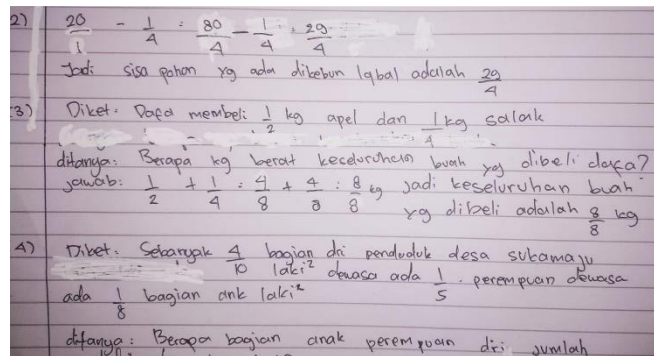 2) 20/1 - 1/4 : 80/4 - 1/4 : 29/4
Jadi sisa pohon yg ada dikebun Iqbal adalah 29/4
3) Diket: Dafa membeli 1/2 kg apel dan 1/4 kg salak
ditanya: Berapa kg berat keseluruhan buah yg dibeli dafa?
Jawab: 1/2 + 1/4 : 4/8 + 4/8 : 8/8 kg Jadi keseluruhan buah
yg dibeli adalah 8/8 kg
4) Diket: Sebanyak 4/10 bagian dri penduduk desa sukamaju
laki² dewasa ada 1/5. perempuan dewasa
ada 1/8 bagian ank laki²
ditanya: Berapa bagian anak perempuan dri jumlah